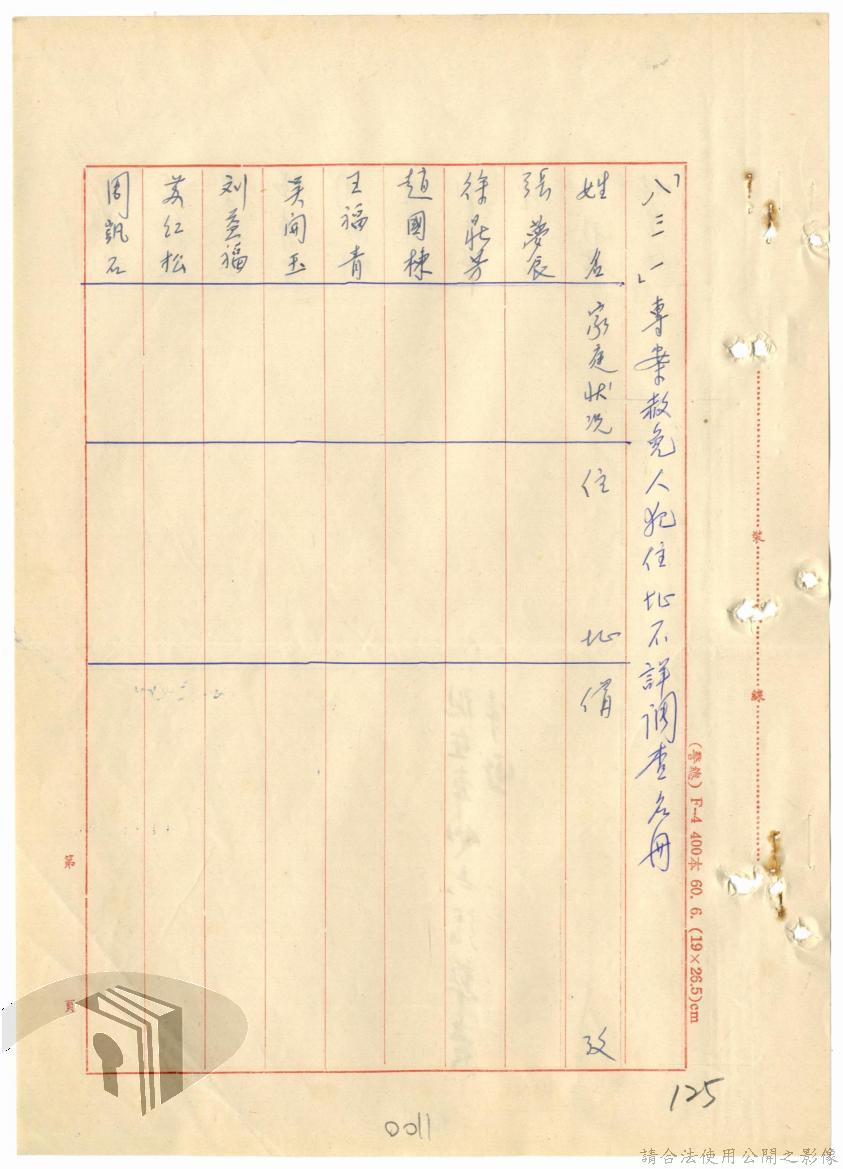 「八三一」專案赦免人犯住址不詳調查名冊
姓名 家庭狀況 住址 備攷
張夢辰
徐
趙國棟
王福青
吴開玉
刘益福
苏红松
周凱石
裝
線
(警總) F-4 400本 60. 6. (19×26.5)cm
第
頁
125
0011
請合法使用公開之影像